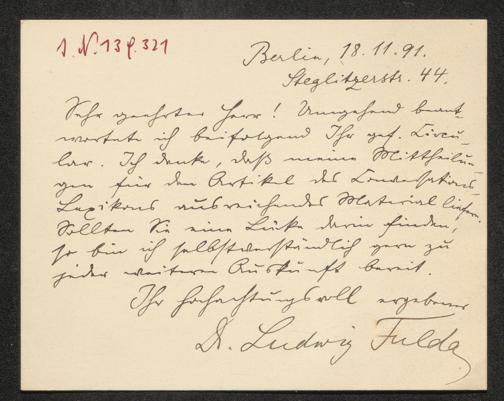 I. N. 139.321
Berlin, 18.11.91.
Steglitzerstr. 44.
Sehr geehrter Herr! Umgehend beant-
worte ich beifolgend Ihr gef. Circu-
lar. Ich denke, daß meine Mittheilun-
gen für den Artikel des Conversations-
Lexikons ausreichendes Material liefern.
Sollten Sie eine Lücke darin finden,
so bin ich selbstverständlich gern zu
jeder weiteren Auskunft bereit.
Ihr hochachtungsvoll ergebener
Dr. Ludwig Fulda